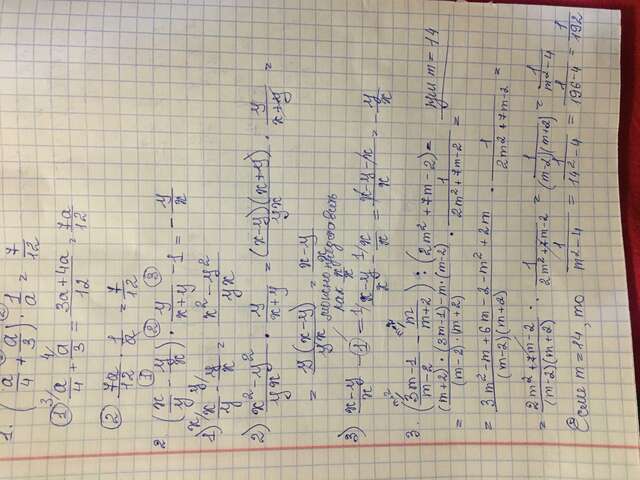 1. (a/4 + a/3) · 1/a = 7/12
① a/4 + a/3 = (3a+4a)/12 = 7a/12
② 7a/12 · 1/a = 7/12
2. (x/y − y/x) · y/(x+y) − 1 = −y/x
1) x/y − y/x = (x²−y²)/yx
2) (x²−y²)/yx · y/(x+y) = (x−y)(x+y)/yx · y/(x+y) =
= y(x−y)/yx = (x−y)/x
3) (x−y)/x − 1 = (x−y)/x − x/x = (x−y−x)/x = −y/x
можно представить как
3. ((3m−1)/(m−2) − m/(m+2)) : (2m²+7m−2) = при m=14
= ((m+2)·(3m−1)−m·(m−2))/((m−2)·(m+2)) · 1/(2m²+7m−2) =
= (3m²−m+6m−2−m²+2m)/((m−2)(m+2)) · 1/(2m²+7m−2) =
= (2m²+7m−2)/((m−2)(m+2)) · 1/(2m²+7m−2) = 1/((m−2)(m+2)) = 1/(m²−4)
Если m=14, то 1/(m²−4) = 1/(14²−4) = 1/(196−4) = 1/192